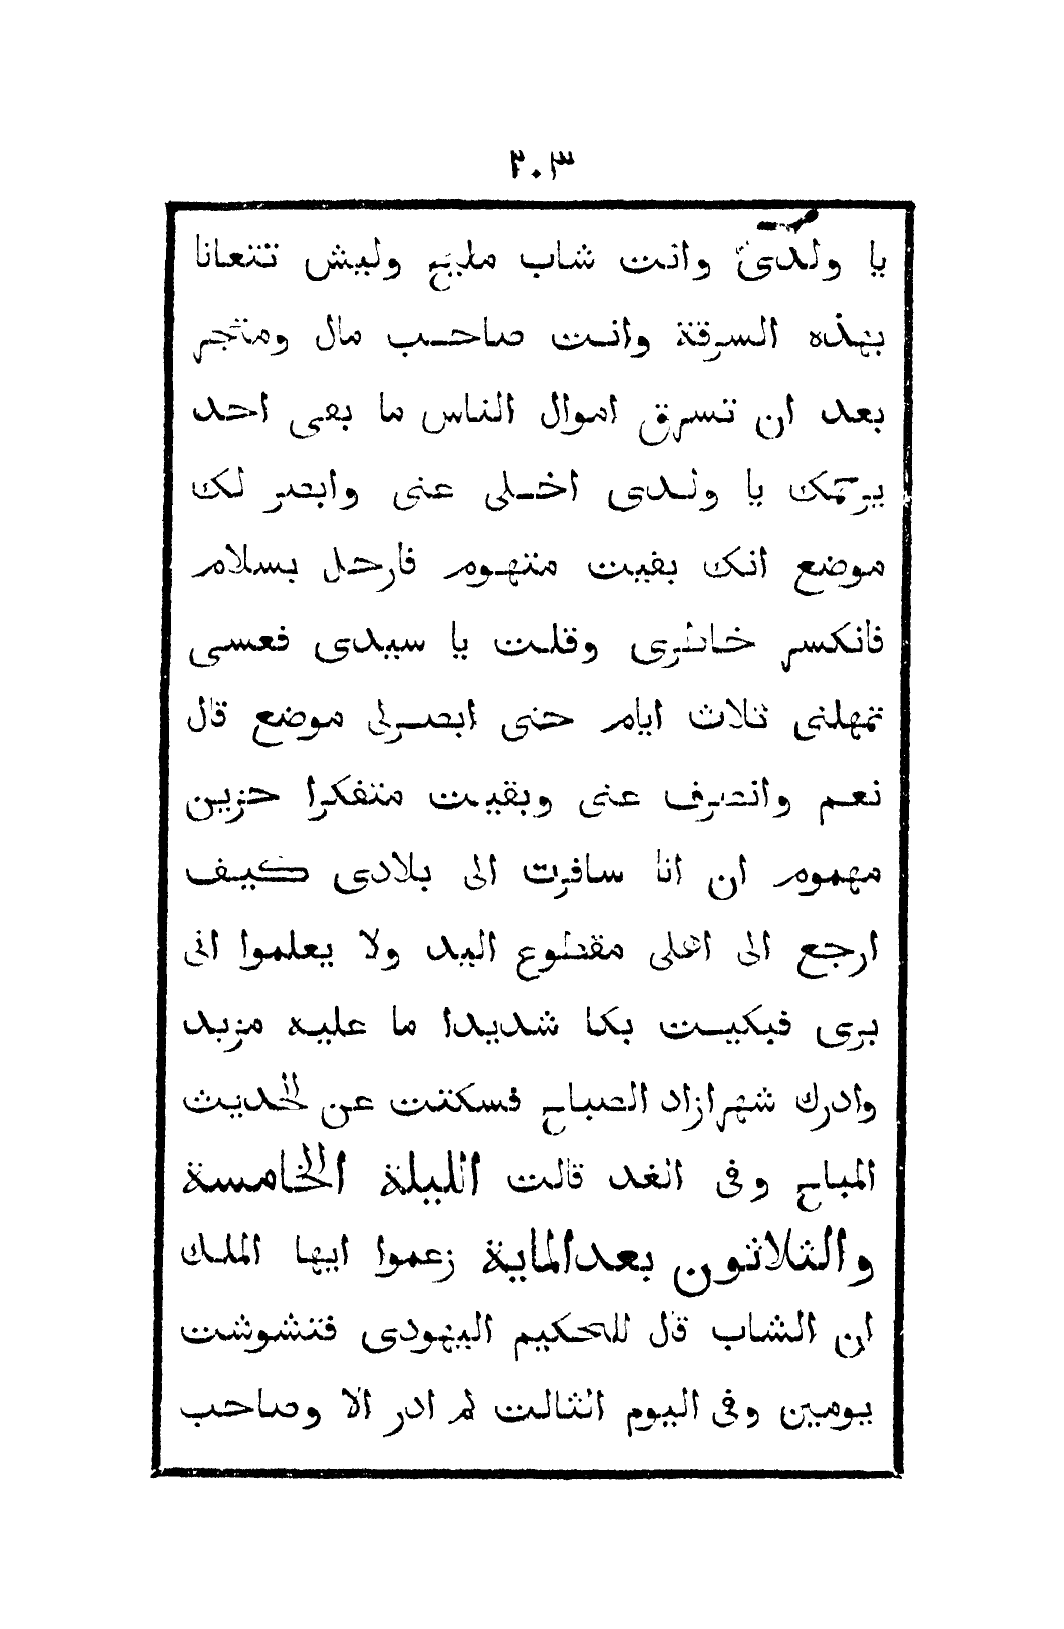 ٢٠٣
يا ولدى وانت شاب مليح وليش تتعانا
بهذه السرقة وانت صاحب مال ومتجر
بعد ان تسرق اموال الناس ما بقى احد
يرحمك يا ولدى اخلى عنى وابصر لك
موضع انك بقيت متهوم فارحل بسلام
فانكسر خاطرى وقلت يا سيدى فعسى
تمهلنى ثلاث ايام حتى ابصرلى موضع قال
نعم وانصرف عنى وبقيت متفكرا حزين
مهموم ان انا سافرت الى بلادى كيف
ارجع الى اهلى مقطوع اليد ولا يعلموا انى
برى فبكيت بكا شديدا ما عليه مزيد
وادرك شهرازاد الصباح فسكتت عن الحديث
المباح وفى الغد قالت الليلة الخامسة
والثلاثون بعدالماية زعموا ايها الملك
ان الشاب قال للحكيم اليهودى فتشوشت
يومين وفى اليوم الثالت لم ادر الا وصاحب